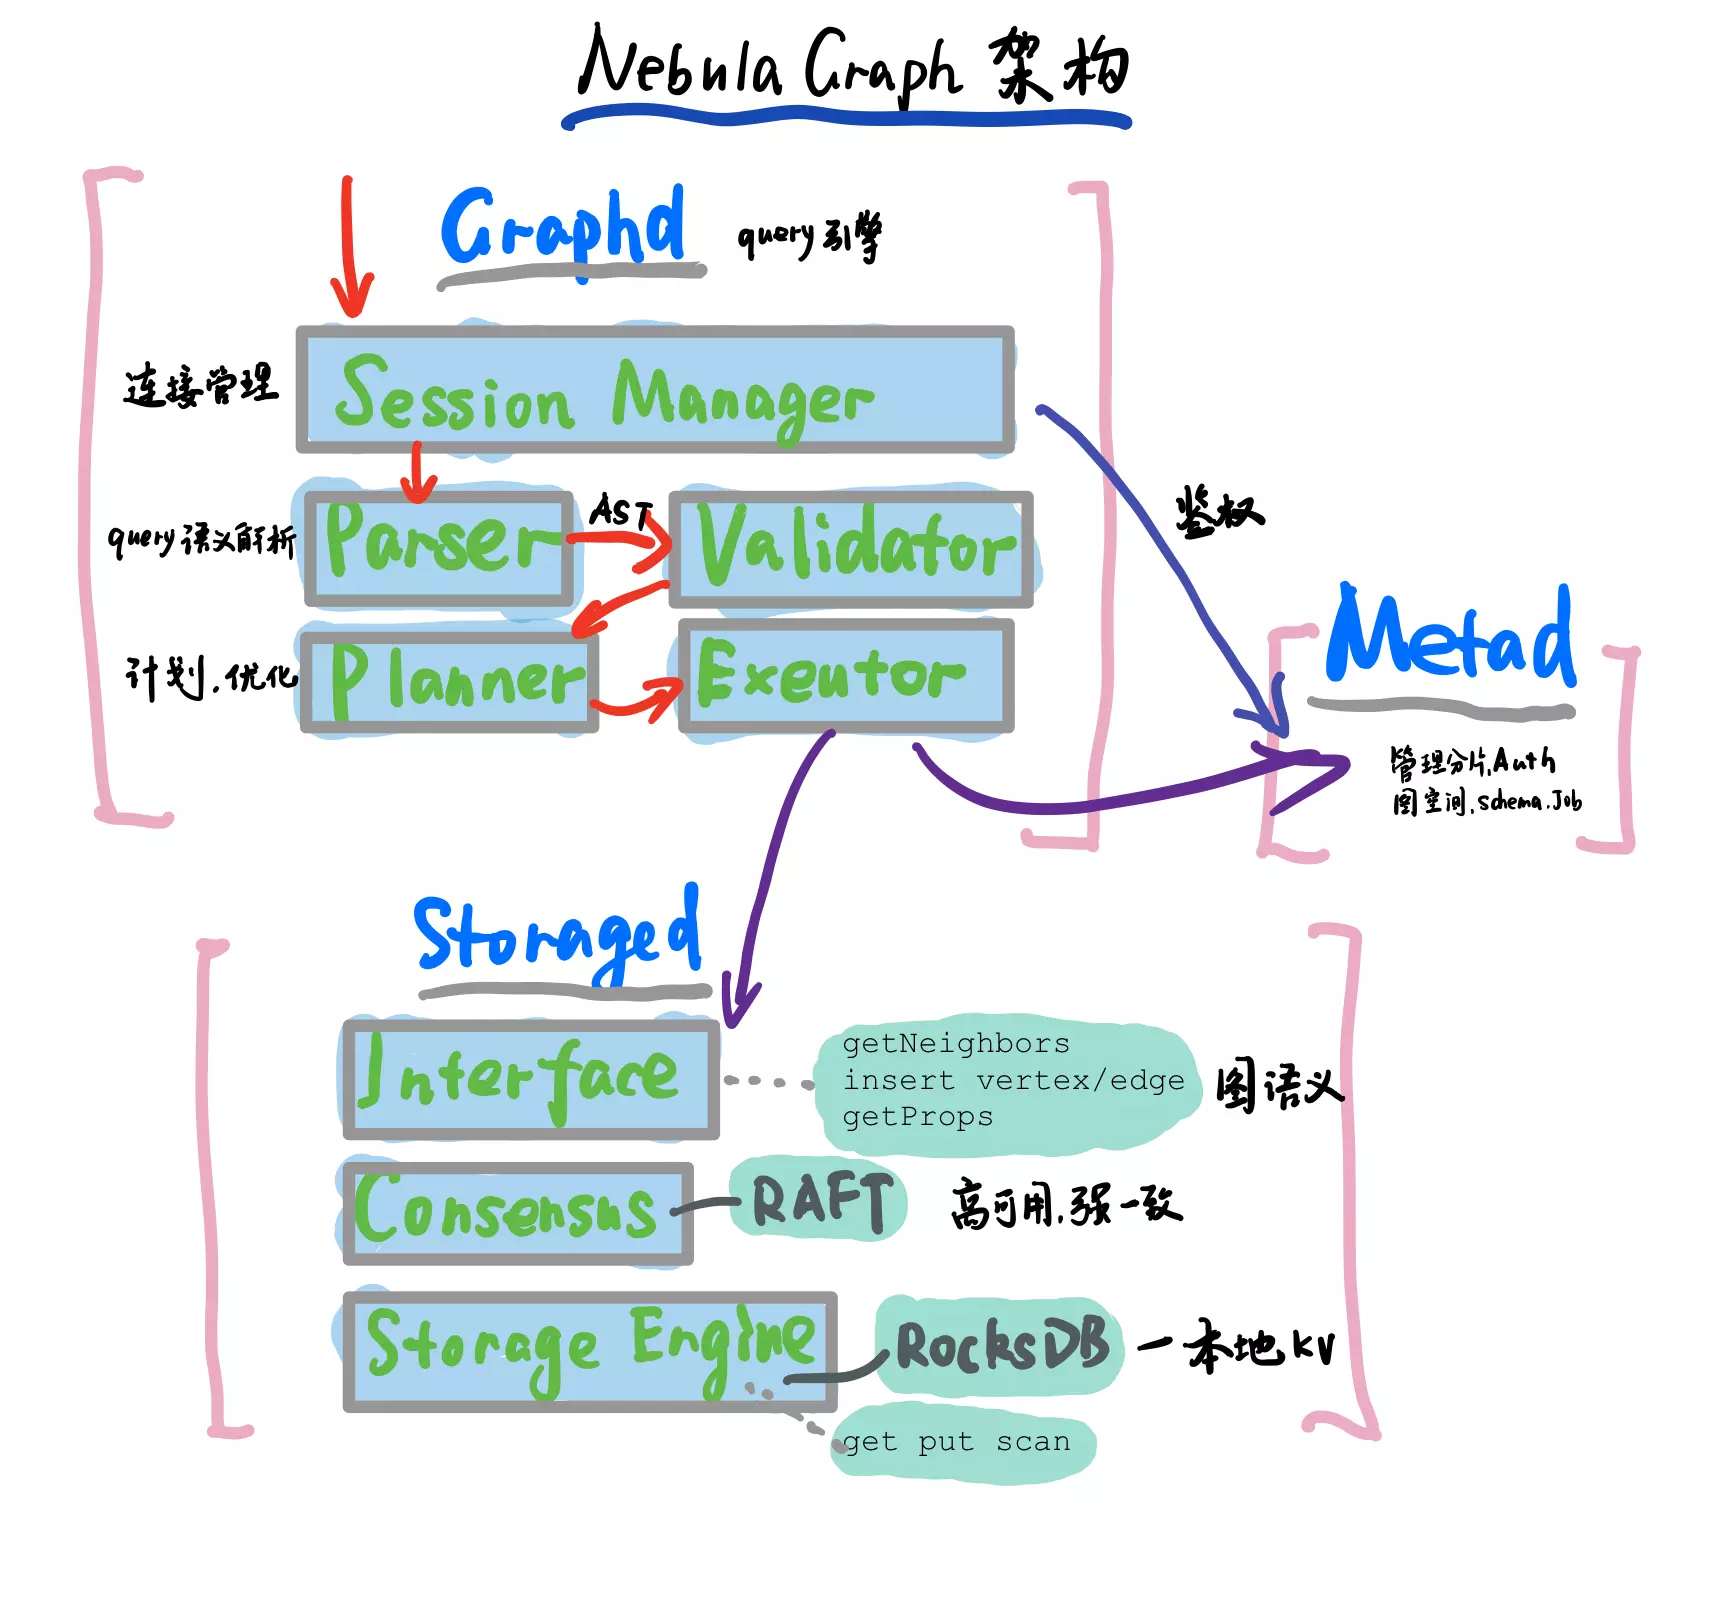 Nebula Graph 架构
Graphd query引擎
连接管理 Session Manager
query语义解析 Parser AST Validator
鉴权
计划.优化 Planner Exeutor
Metad
管理分片,Auth
图空间,schema.Job
Storaged
Interface
getNeighbors
insert vertex/edge
getProps
图语义
Consensus RAFT 高可用,强一致
Storage Engine RocksDB 一本地KV
get put scan